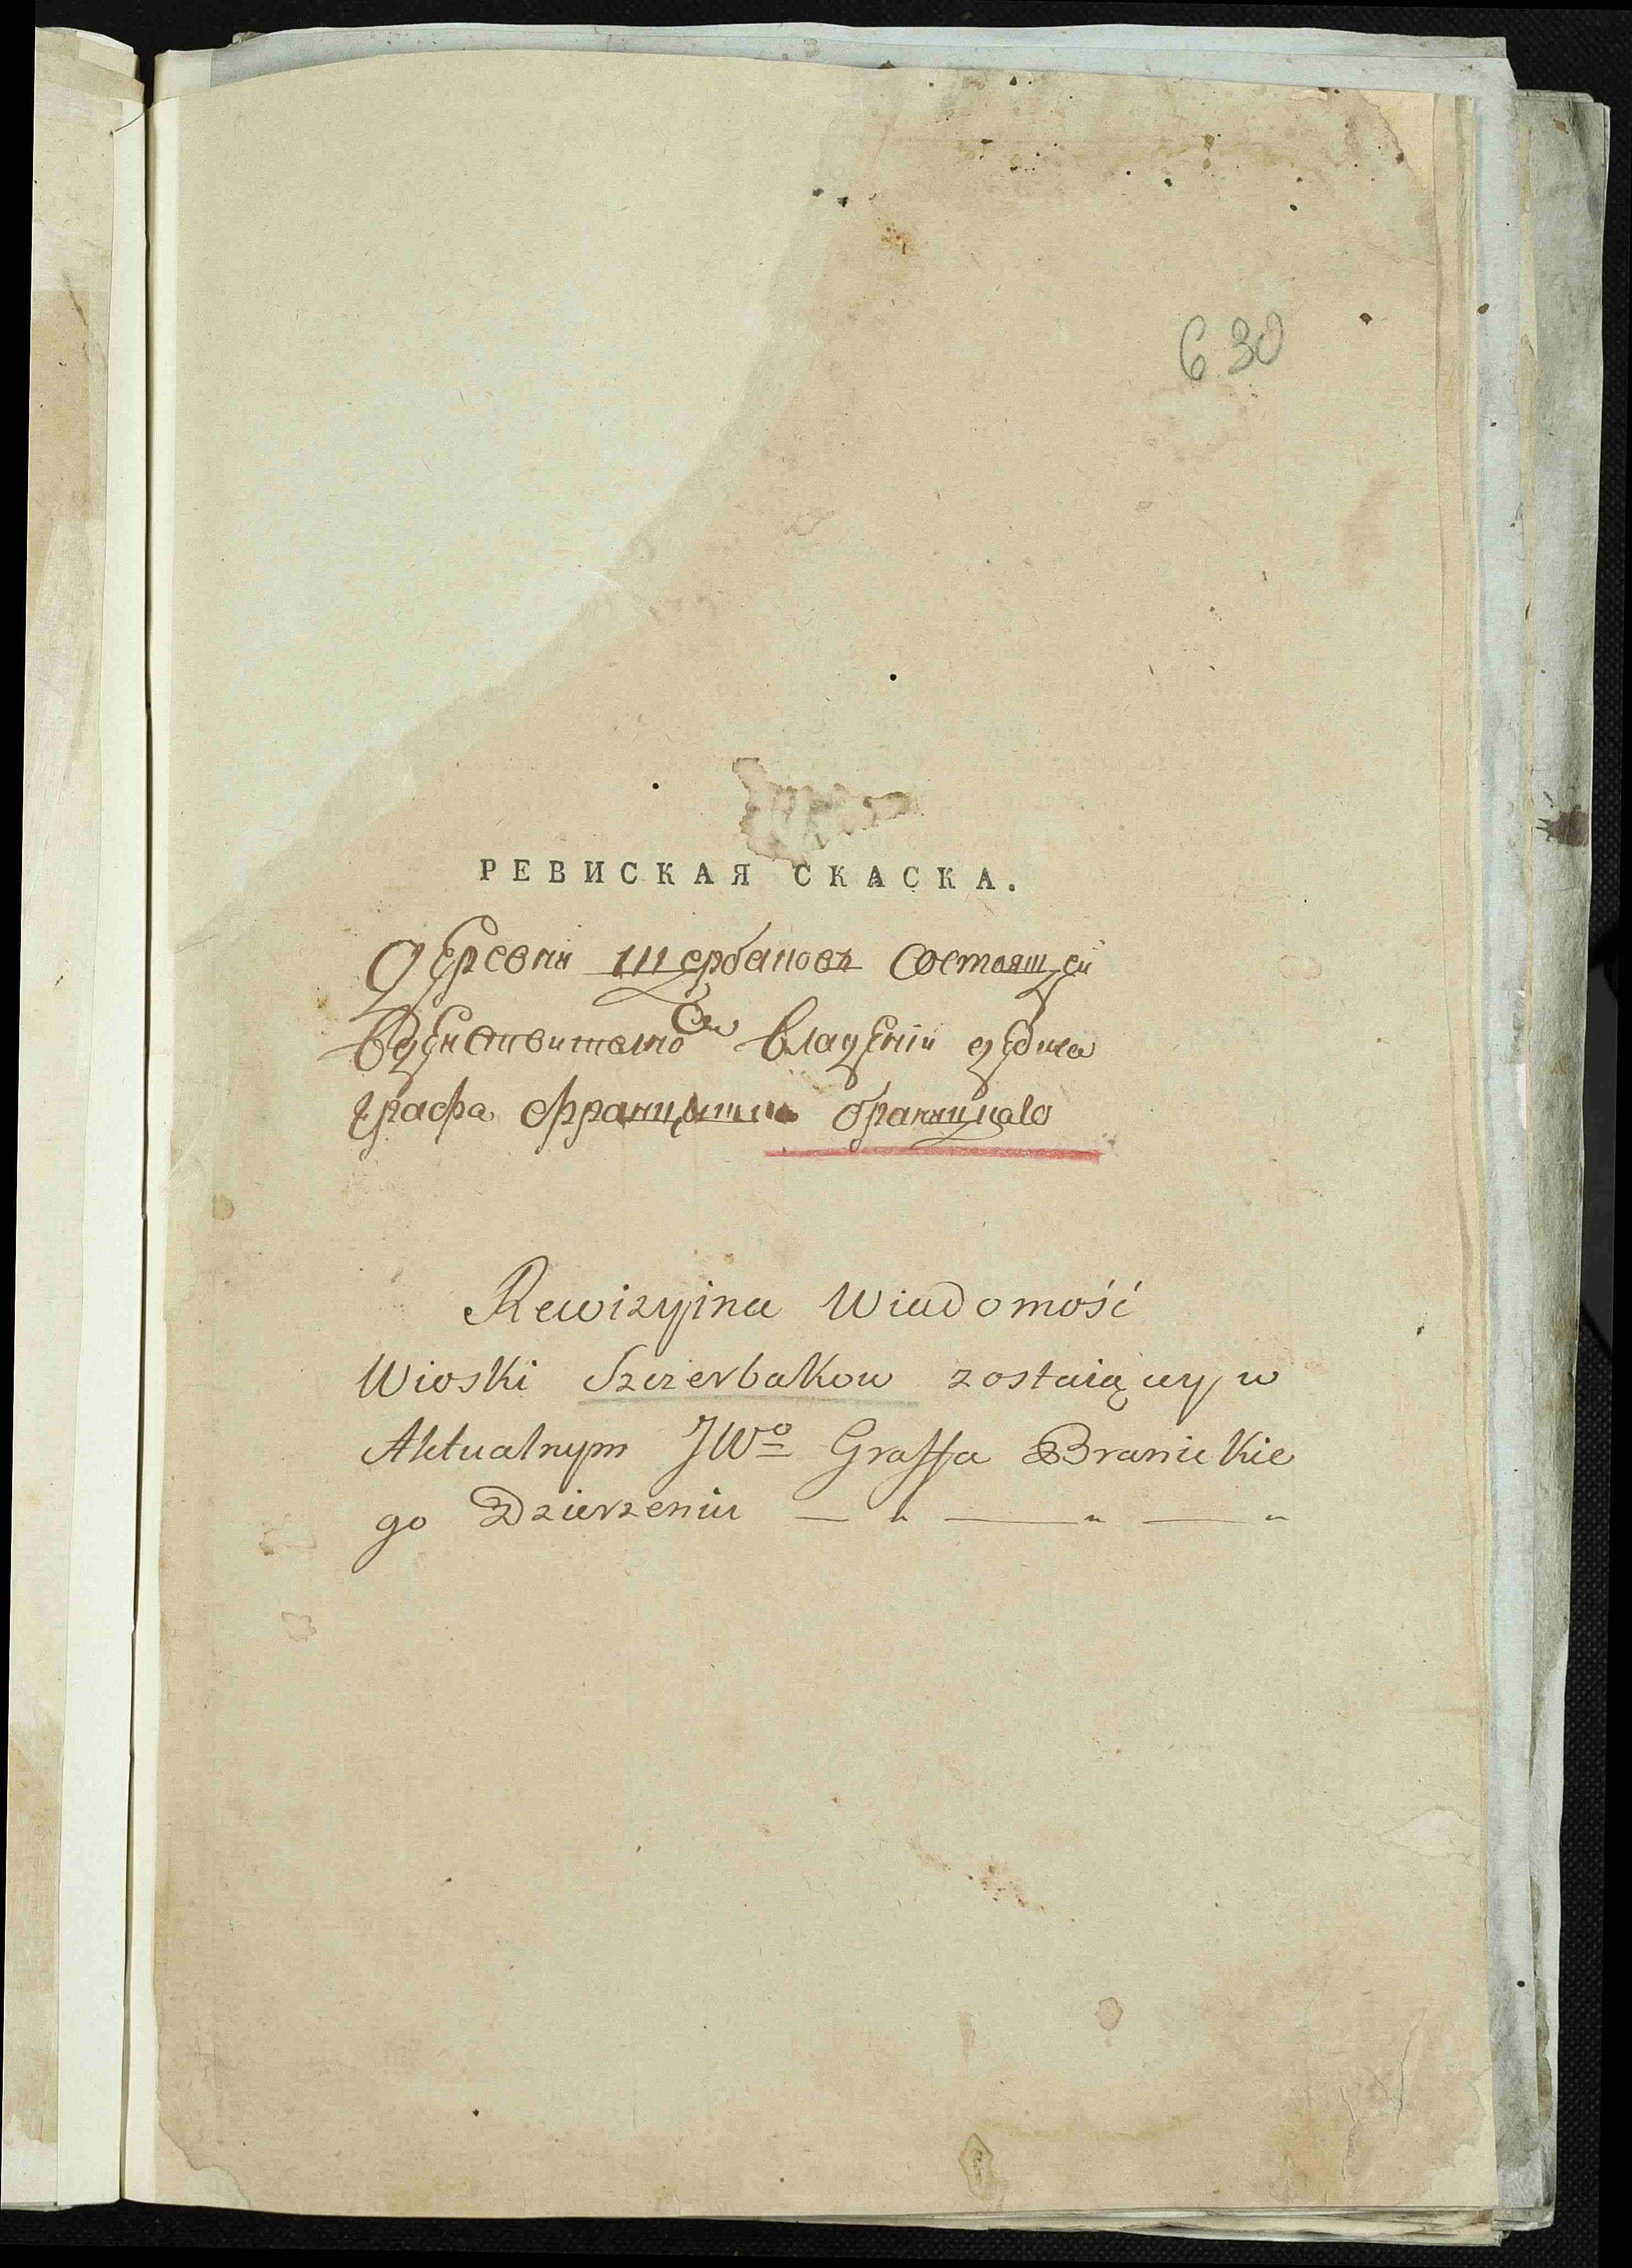 630
РЕВИСКАЯ СКАСКА.
Деревни щербаковъ Состоящей
Вдействителномъ владении дедича
графа францишка браницкаго
Rewizyjna Wiadomość
Wioski Szczerbakow zostaiącey w
Aktualnym JWo Graffa Branickie
go Dzierzeniu — " — " — "